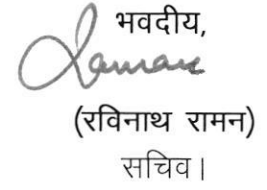 भवदीय,
(रविनाथ रामन)
सचिव।